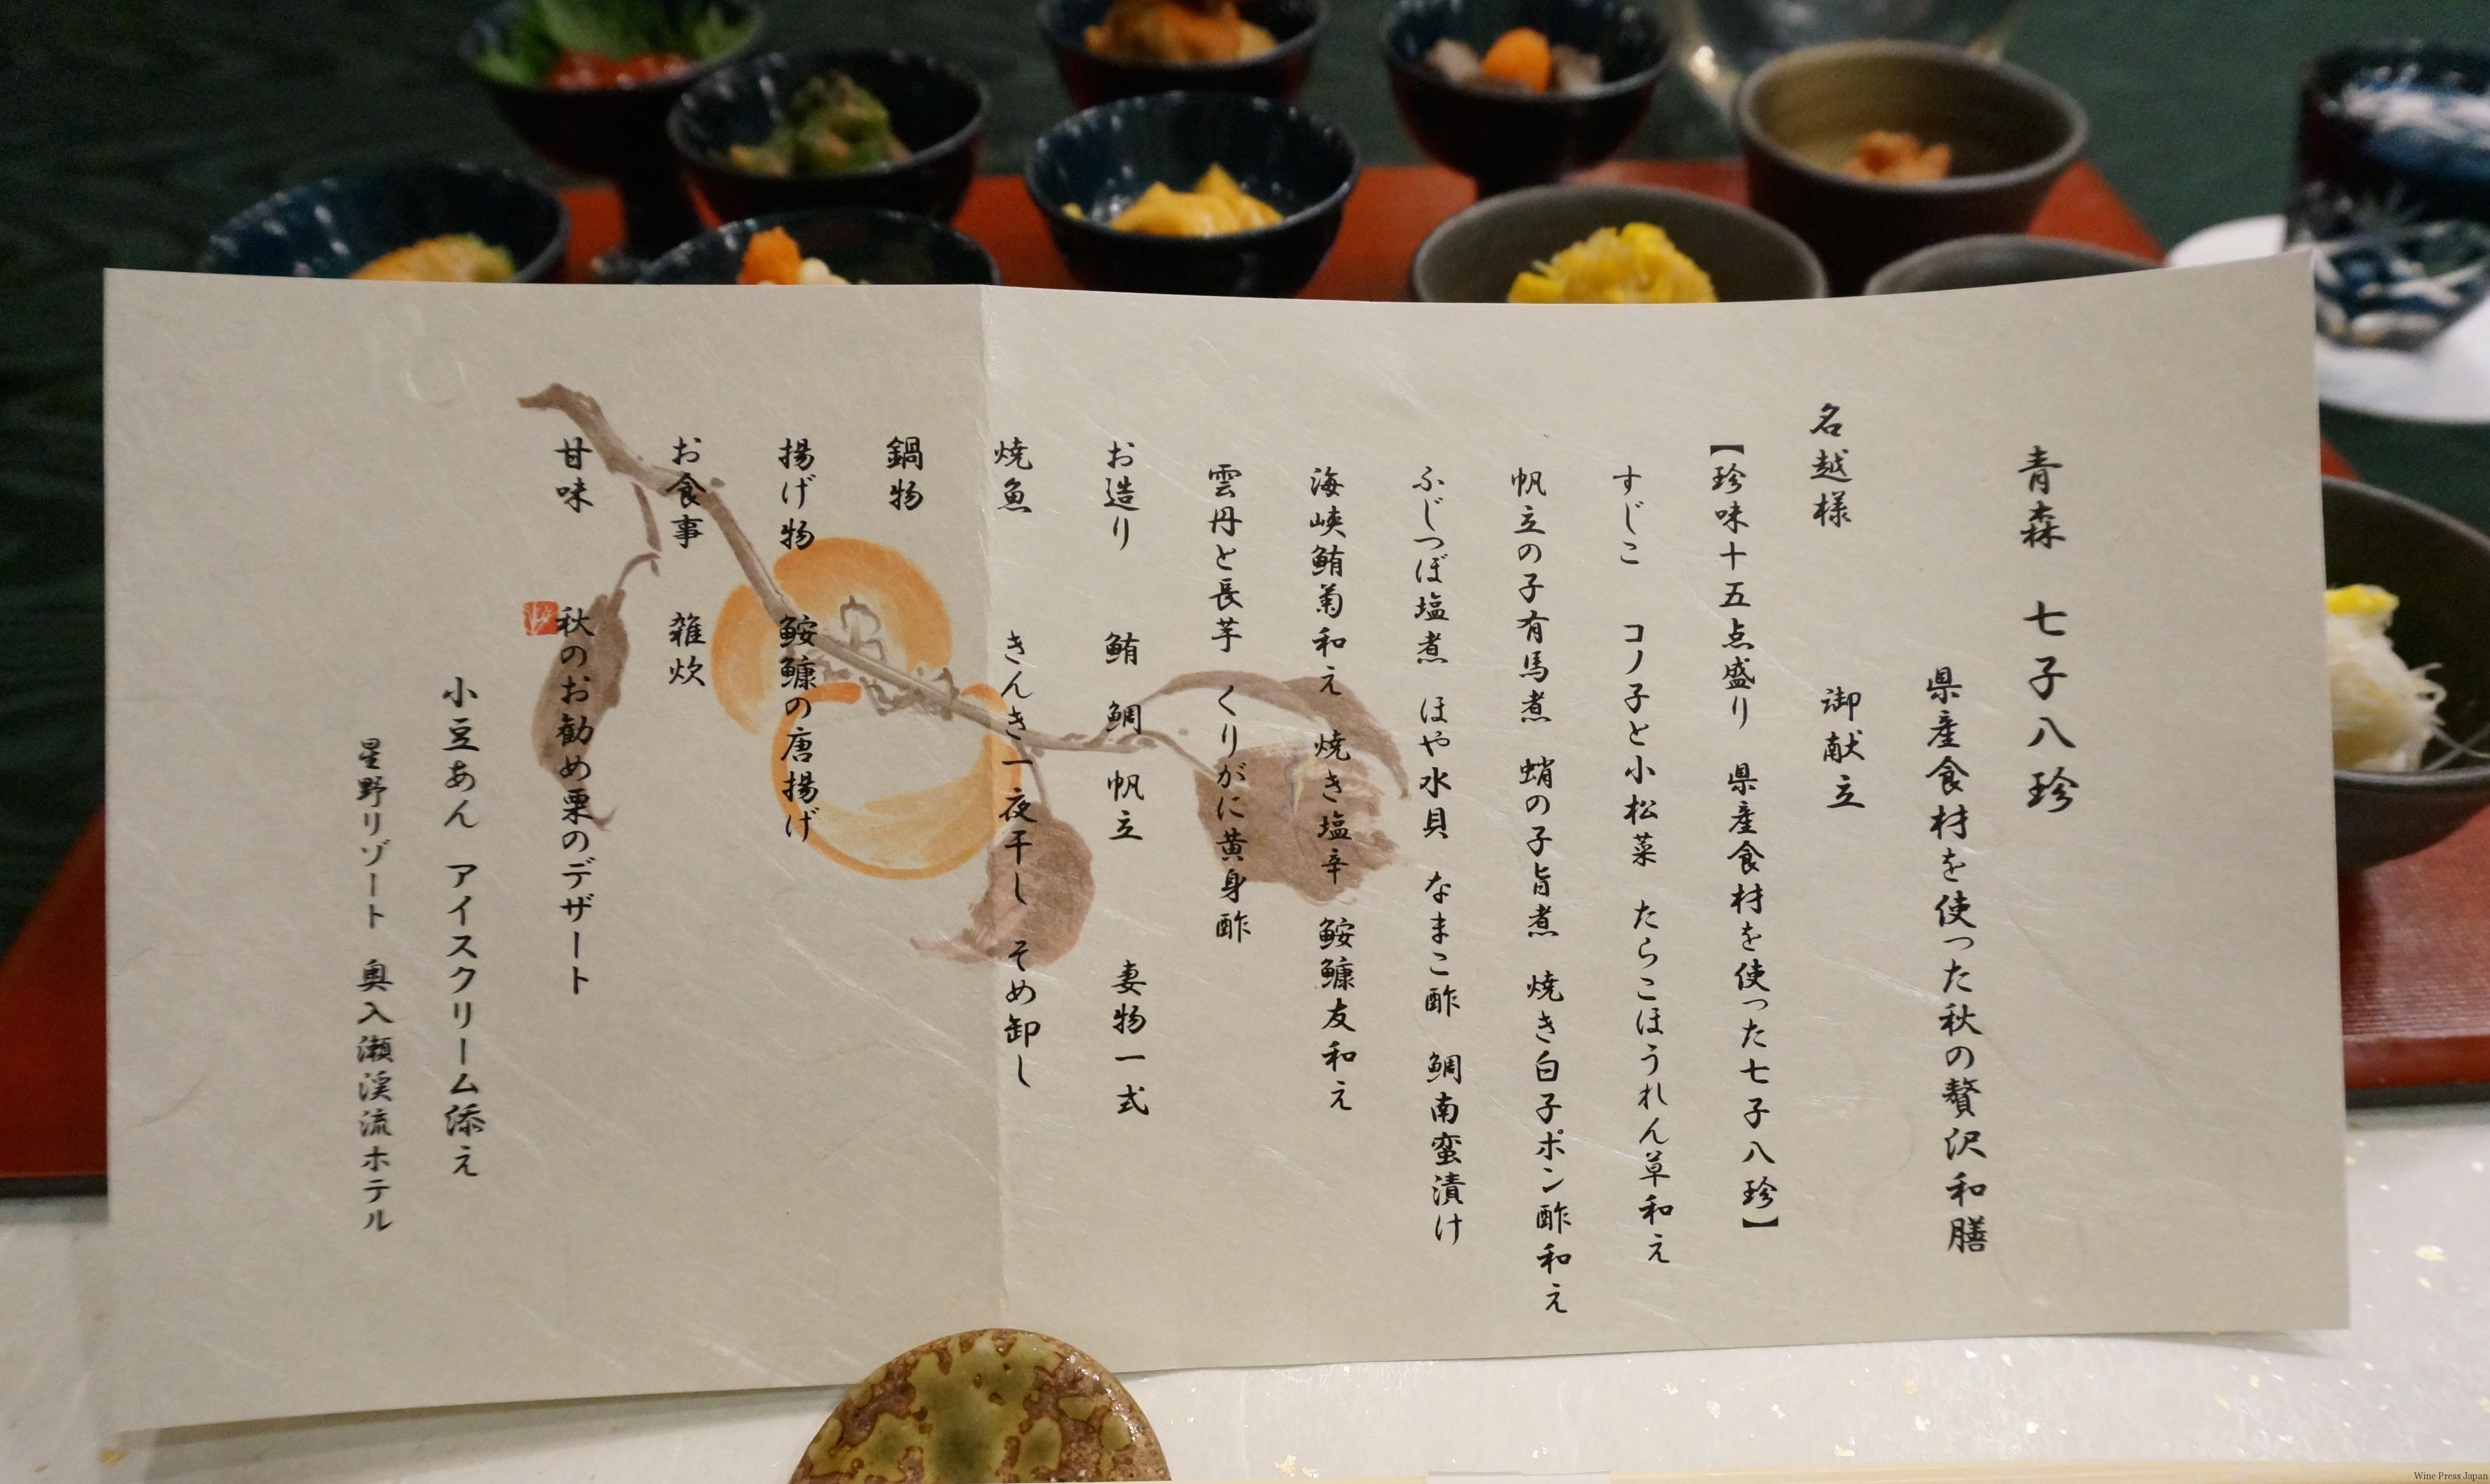 青森 七子八珍
県産食材を使った秋の贅沢和膳
名越様 御献立
【珍味十五点盛り 県産食材を使った七子八珍】
すじこ コノ子と小松菜 たらこほうれん草和え
帆立の子有馬煮 蛸の子旨煮 焼き白子ポン酢和え
ふじつぼ塩煮 ほや水貝 なまこ酢 鯛南蛮漬け
海峡鮪菊和え 焼き塩辛 鮟鱇友和え
雲丹と長芋 くりがに黄身酢
お造り 鮪 鯛 帆立 妻物一式
焼魚 きんき一夜干し そめ卸し
鍋物
揚げ物 鮟鱇の唐揚げ
お食事 雑炊
甘味 秋のお勧め栗のデザート
小豆あん アイスクリーム添え
星野リゾート 奥入瀬渓流ホテル
Wine Press Japan